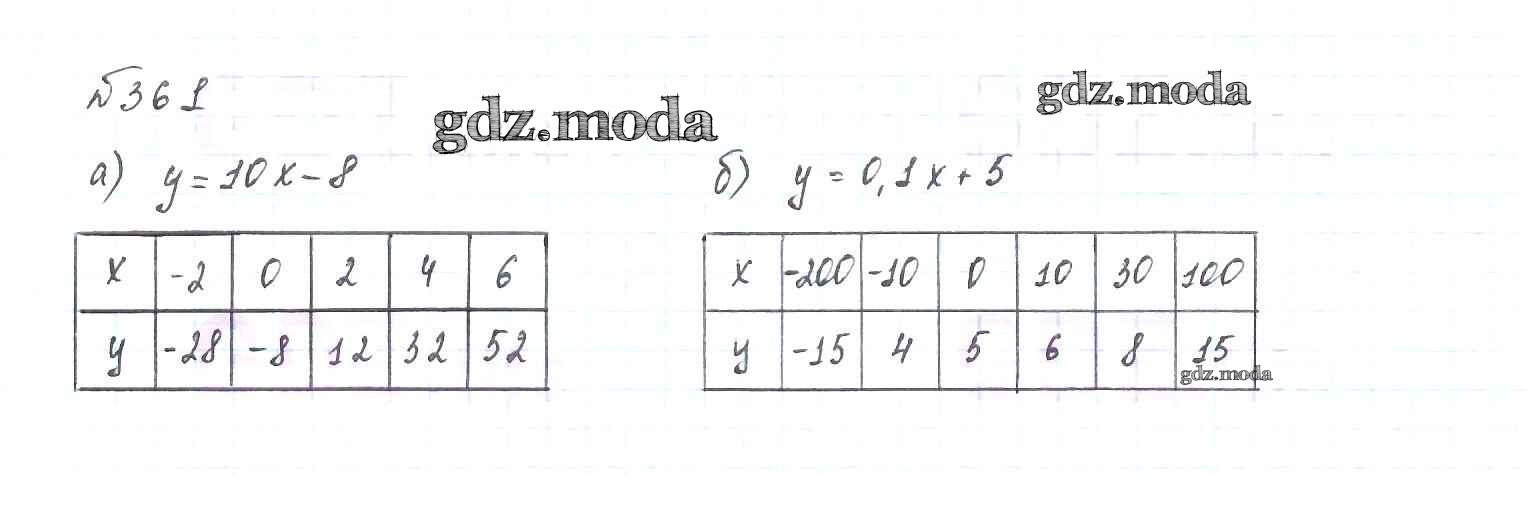 №361
gdz.moda
gdz.moda
а) y = 10x - 8
б) y = 0,1x + 5
x -2 0 2 4 6
y -28 -8 12 32 52
x -200 -10 0 10 30 100
y -15 4 5 6 8 15
gdz.moda